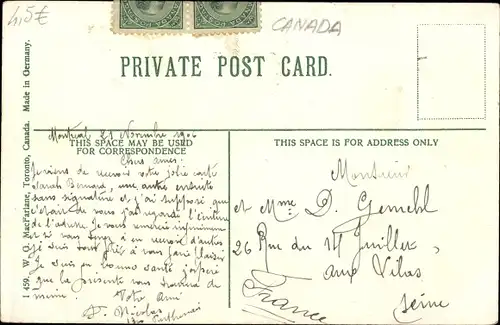 4,5€
CANADA
PRIVATE POST CARD.
Montréal 21 Novembre 1906
THIS SPACE MAY BE USED
FOR CORRESPONDENCE
THIS SPACE IS FOR ADDRESS ONLY
Chers amis:
Je viens de recevoir votre jolie carte
Sarah Bernard, une autre ensuite
sans signature et j'ai supposé que
c'était de vous j'ai regardé l'écriture
de l'adresse Je vous remercie infiniment
et si vous en avez d'autres
je suis tout prêt à vous faire plaisir
Je suis en bonne santé j'espère
que la présente vous trouvera de
meme.
Votre Ami
P. Nicolas
Monsieur
et Mme D. Gemehl
26 Rue du 14 Juillet
aux Lilas
Seine
France
1 459. W. G. MacFarlane, Toronto, Canada. Made in Germany.